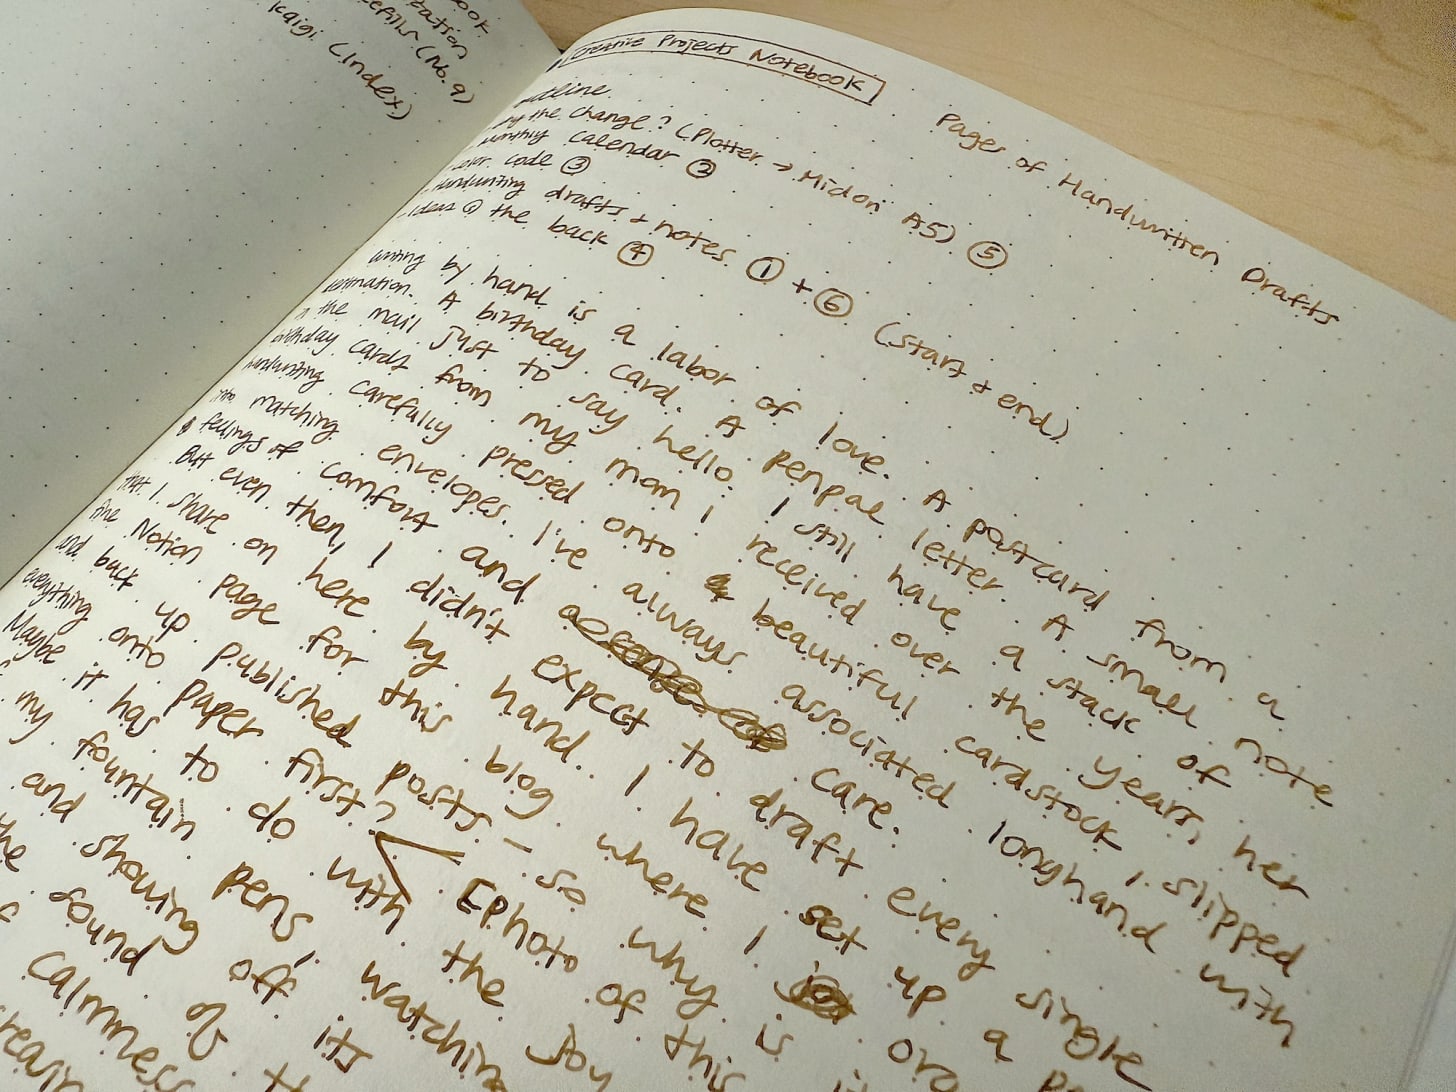 ook
zation
refills (No. 9)
Kaigi (Index)
Creative Projects Notebook
Pages of Handwritten Drafts
outline
why the change? (Plotter → Midori A5) ⑤
monthly calendar ②
color code ③
handwriting drafts + notes ① + ⑥ (start + end)
ideas @ the back ④
writing by hand is a labor of love. A postcard from a
destination. A birthday card. A penpal letter. A small note
in the mail just to say hello. I still have a stack of
birthday cards from my mom I received over the years, her
handwriting carefully pressed onto beautiful cardstock, slipped
into matching envelopes. I've always associated longhand with
feelings of comfort and care.
But even then, I didn't expect to draft every single
that I share on here by hand. I have set up a pe
fine Notion page for this blog where I org
and back up published posts – so why is i
everything onto paper first? [Photo of this
Maybe it has to do with the joy
my fountain pens, watching
and showing off its
the sound of t
calmness